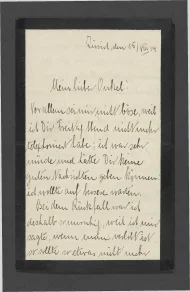 Zürich, den 15/VIII 14
Mein lieber Onkel!
Vor allem sei mir nicht böse, weil
ich Dir Freitag Abend nicht mehr
telephoniert habe; ich war sehr
müde und hätte Dir keine
guten Nachrichten geben können;
ich wollte auf bessere warten.
Bei dem Rückfall war ich
deshalb so unruhig, weil ich mir
sagte, wenn
er sollte so etwas nicht mehr